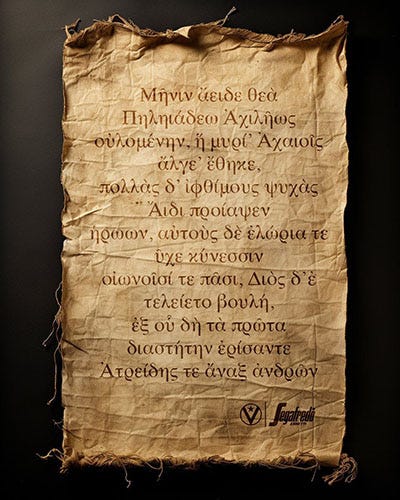 Μῆνιν ἄειδε θεὰ
Πηληιάδεω Ἀχιλῆως
οὐλομένην, ἥ μυρί’ Ἀχαιοῖς
ἄλγε’ ἔθηκε,
πολλὰς δ’ ἰφθίμους ψυχὰς
Ἄϊδι προίαψεν
ἡρώων, αὐτοὺς δὲ ἑλώρια τε
ὓχε κύνεσσιν
οἰωνοῖσί τε πᾶσι, Διὸς δ’ ἐ
τελείετο βουλή,
ἐξ οὗ δὴ τὰ πρῶτα
διαστήτην ἐρίσαντε
Ἀτρείδης τε ἄναξ ἀνδρῶν
Segafredo